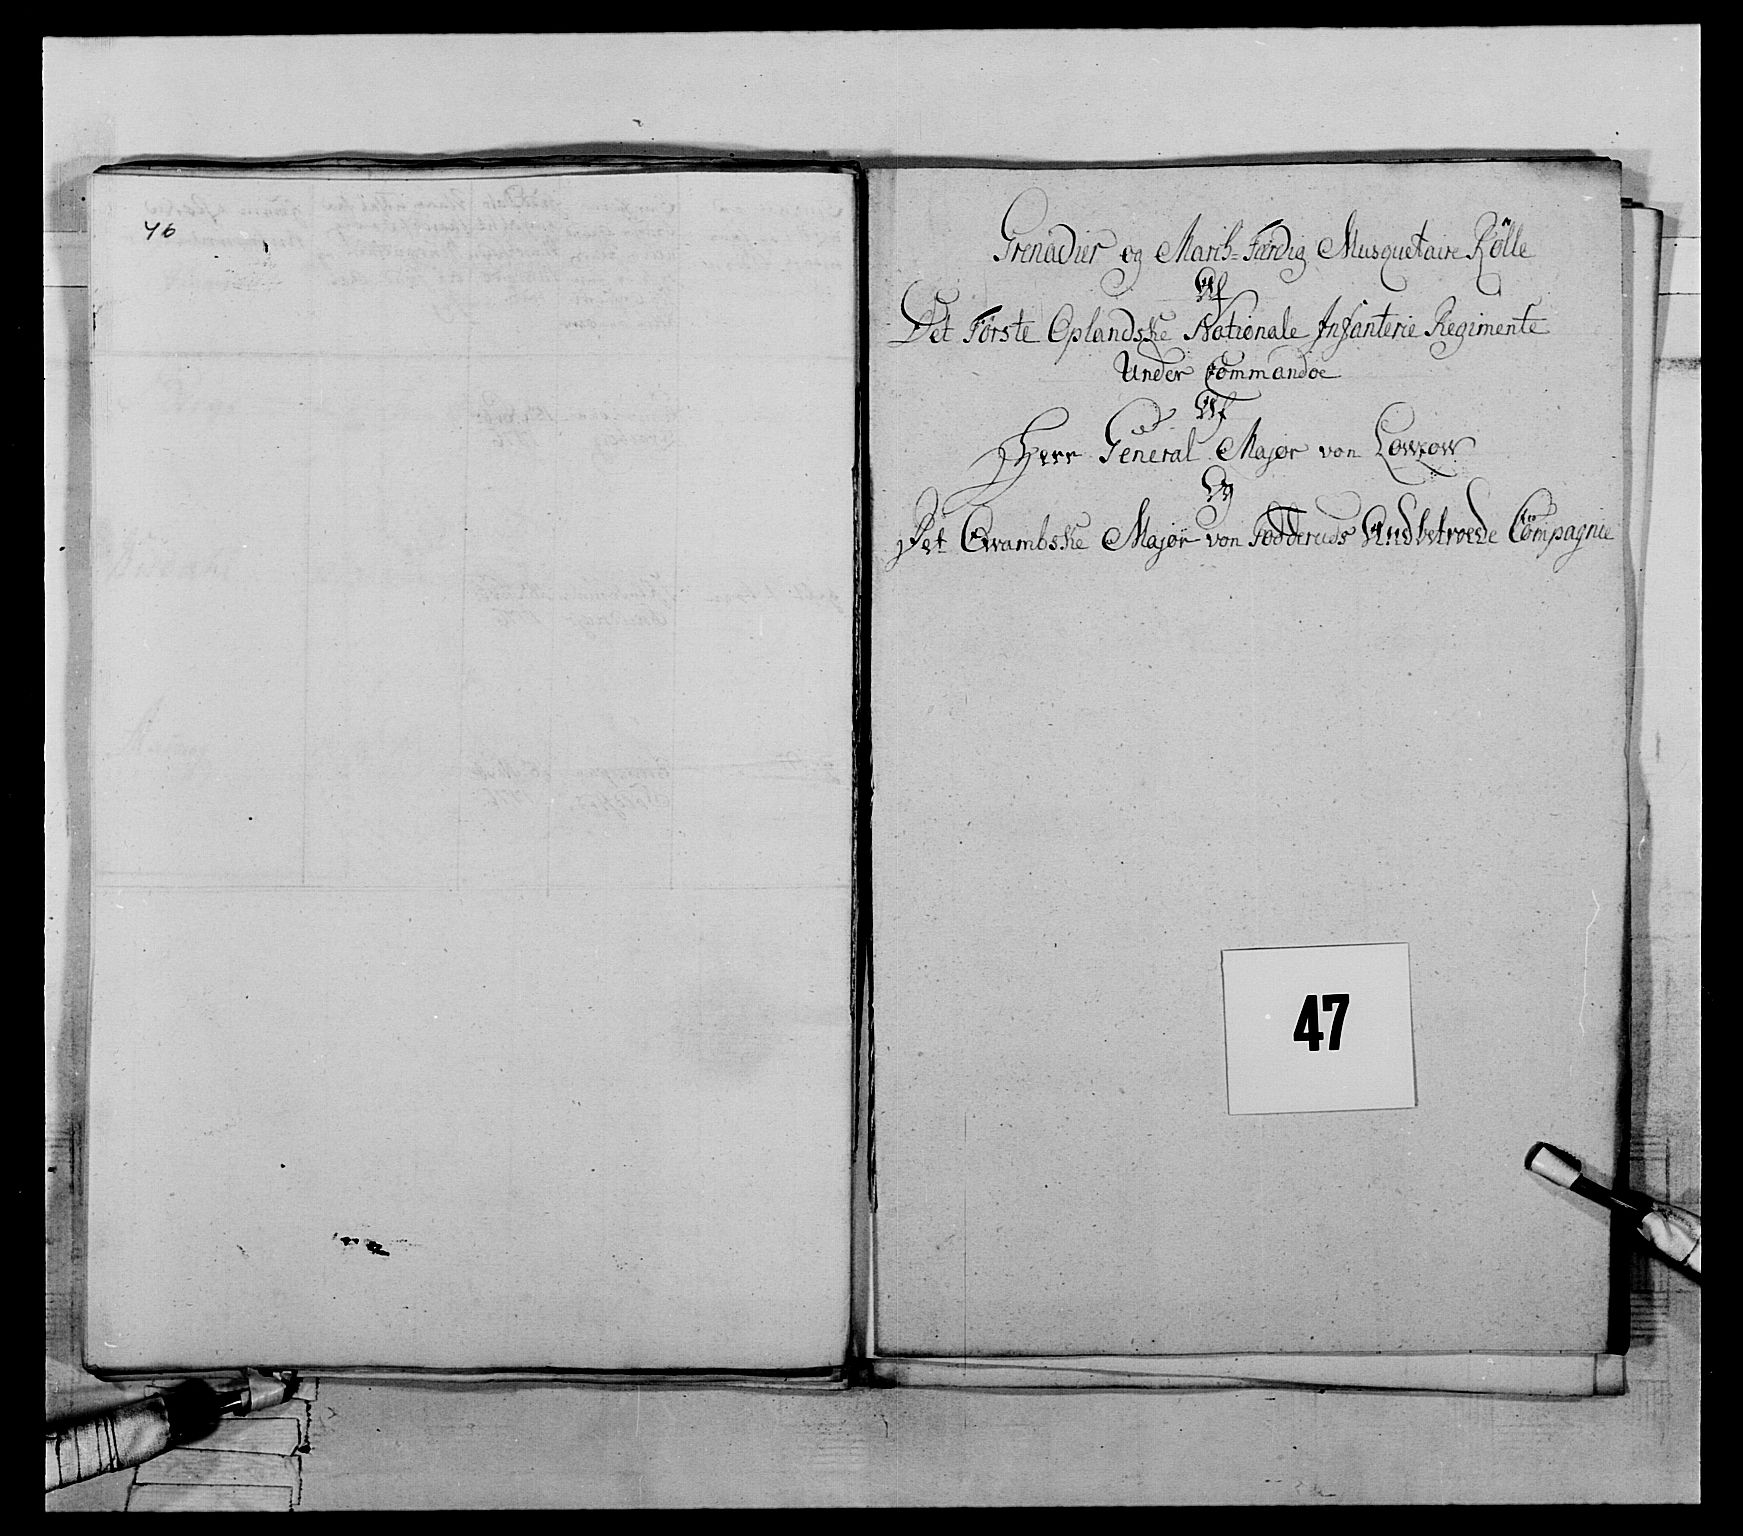 46
Grenadier og March-Færdig Musquetaire Rölle
Af
Det Förste Oplandske Nationale Infanterie Regimente
Under Commandoe
Af
Herr General Major von Lowzow
Og
Det Qvambske Major von Fodderuds Andbetroede Compagnie
47